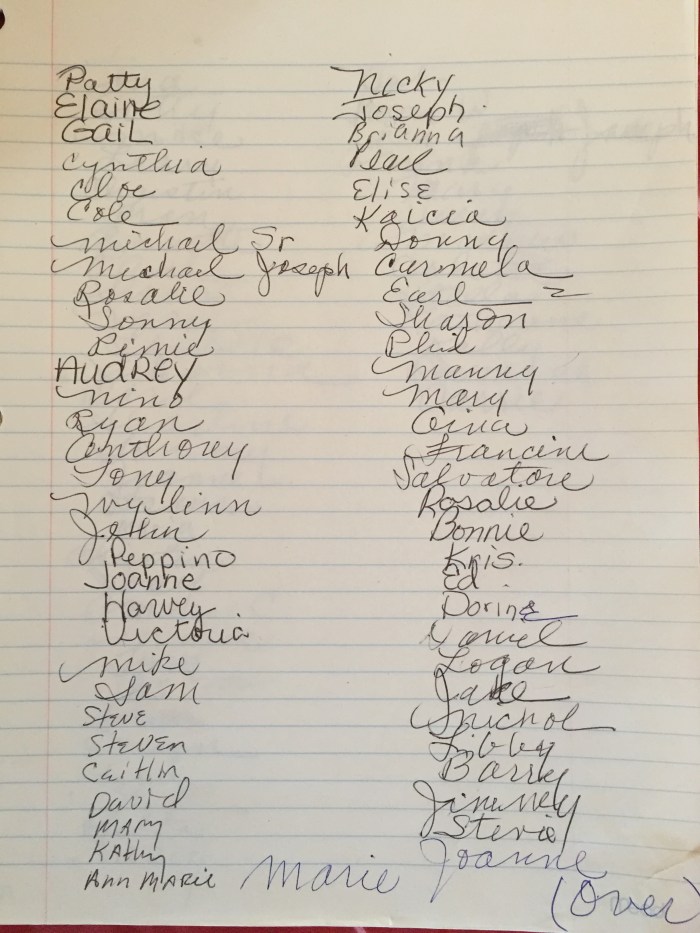 Patty
Elaine
Gail
Cynthia
Cloe
Cole
Michael Sr
Michael Joseph
Rosalie
Sonny
AUDREY
Nino
Ryan
Anthony
Tony
Ivylinn
John
Peppino
Joanne
Harvey
Victoria
Mike
Sam
Steve
Steven
Caitlin
David
Mary
Kathy
Ann Marie
Marie
Nicky
Joseph
Brianna
Pearl
Elise
Kaicia
Donny
Carmela
Earl
Sharon
Phil
Manny
Mary
Gina
Francine
Salvatore
Rosalie
Bonnie
Kris.
Ed
Dorine
Logan
Jake
Nichol
Libby
Barry
Jimmey
Stevie
Joanne
(Over)